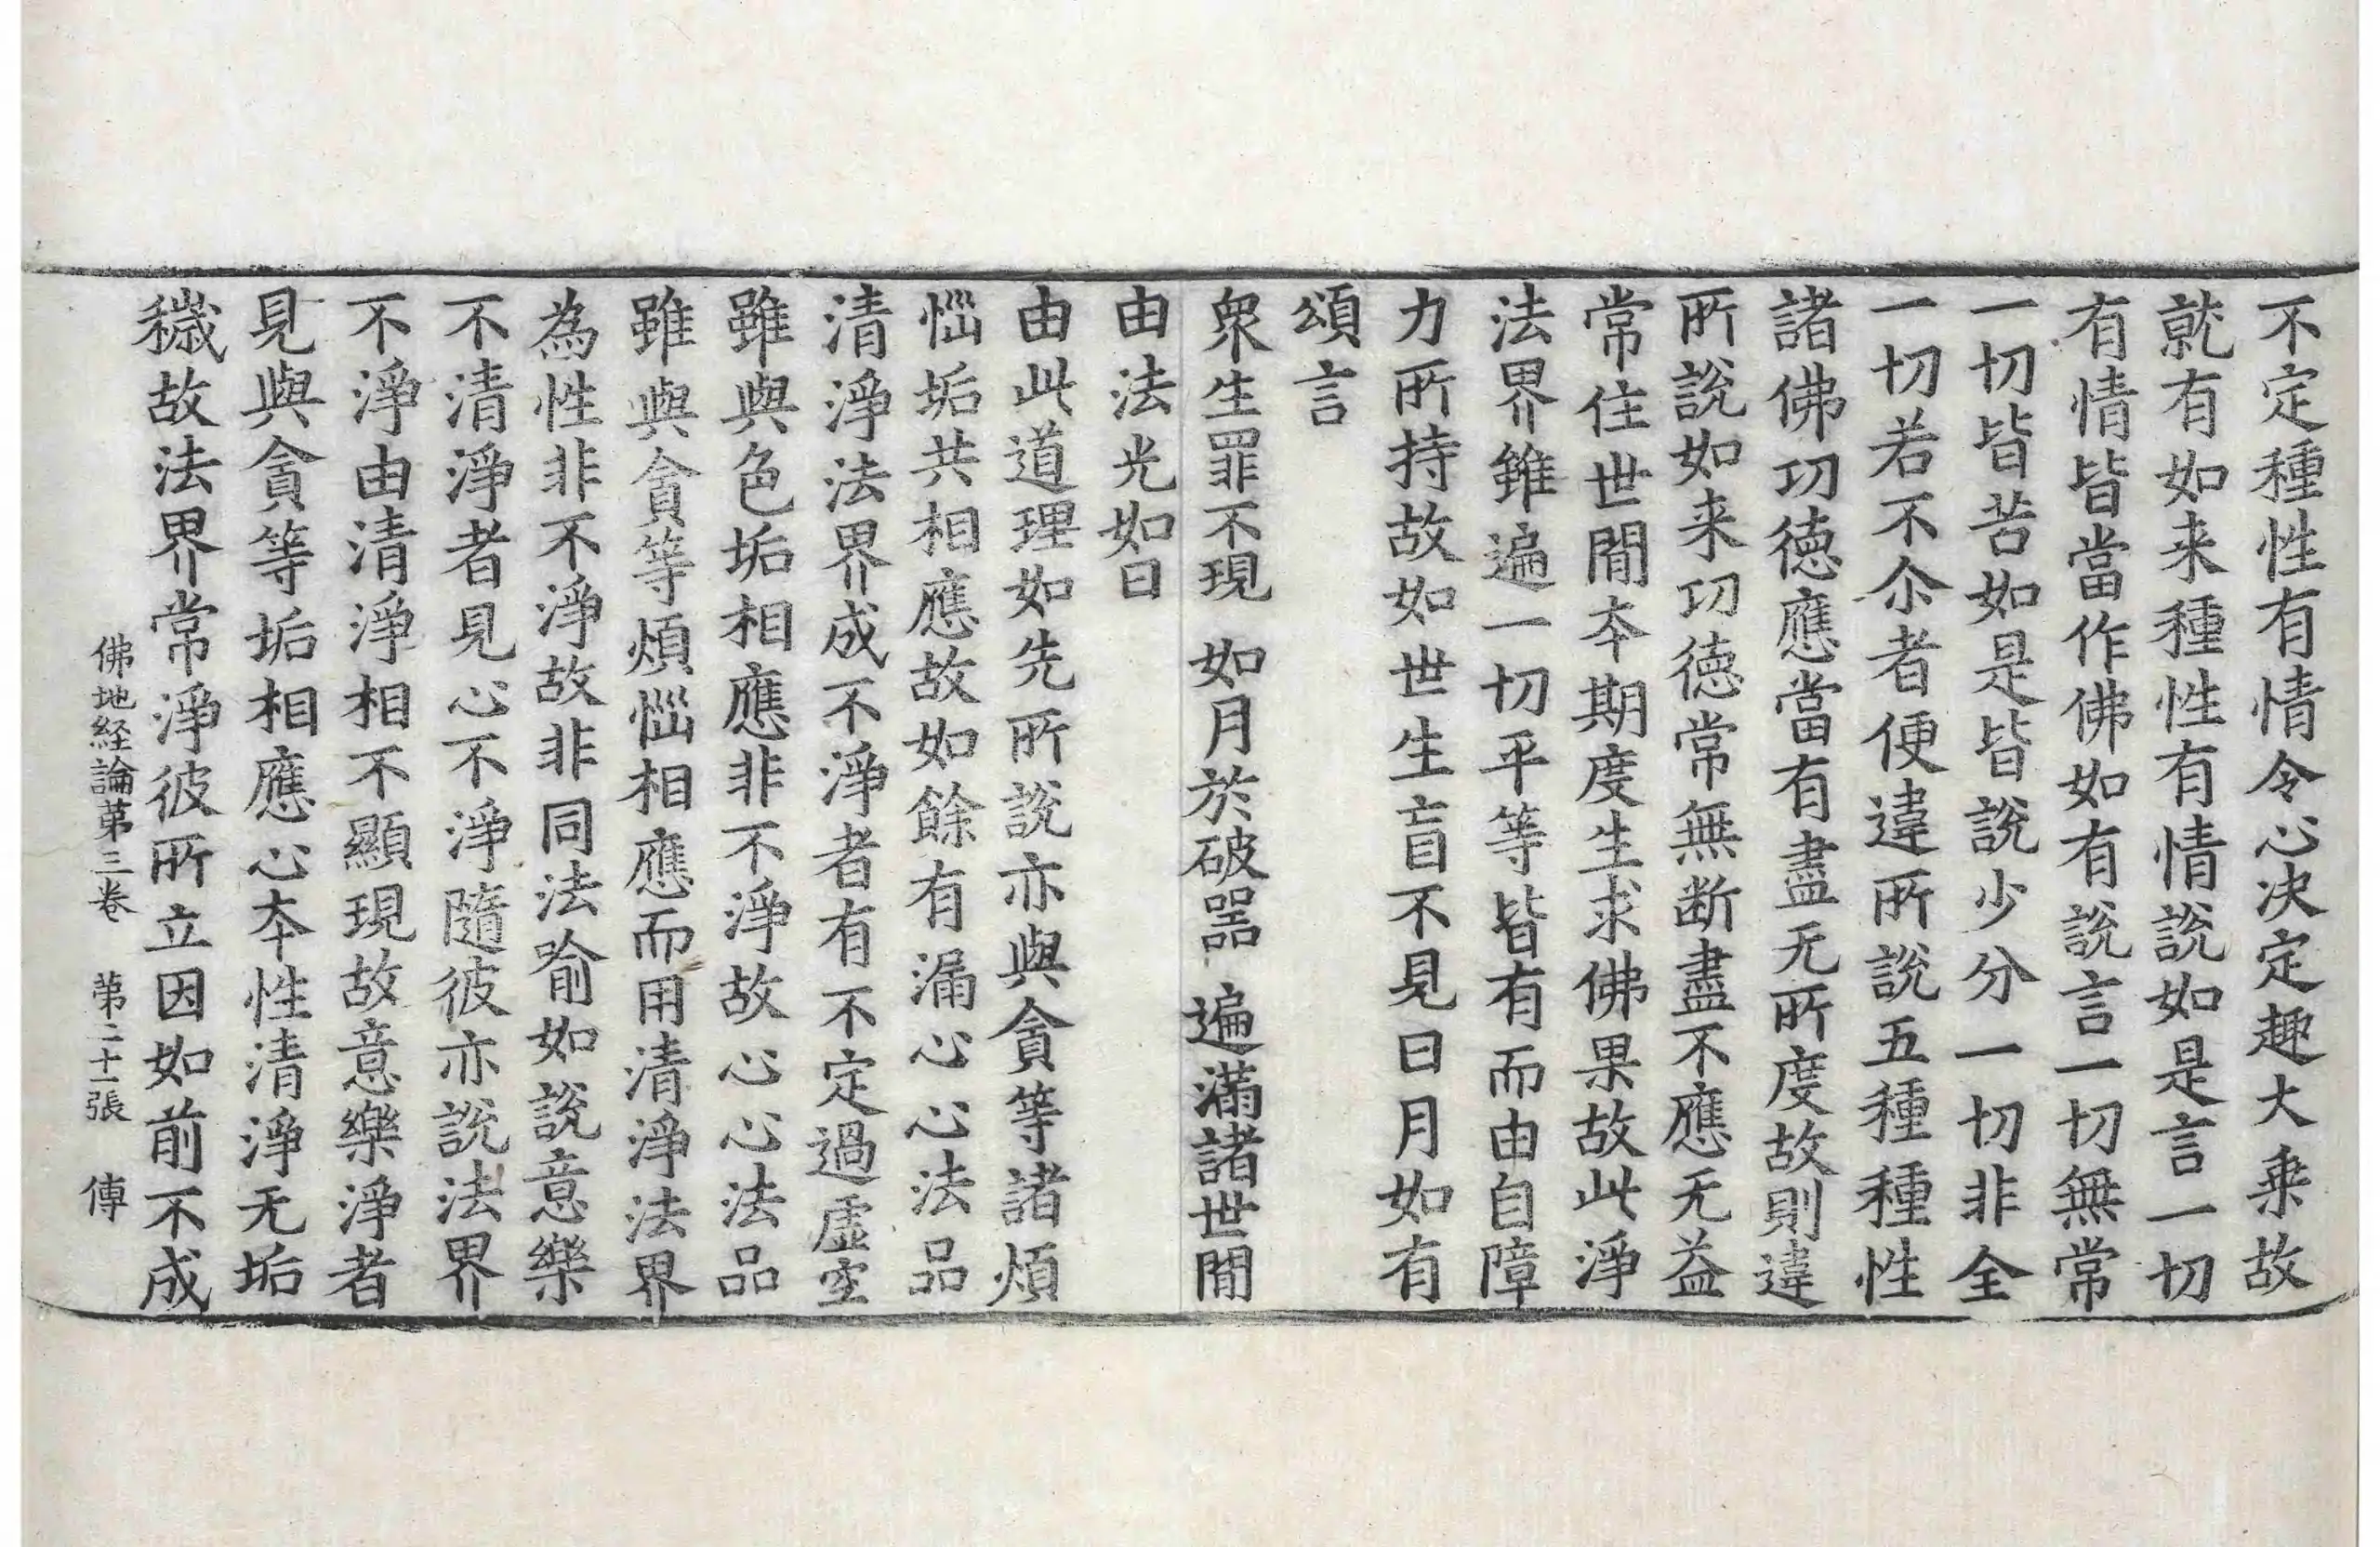 不定種性有情令心决定趣大乗故
就有如来種性有情說如是言一切
有情皆當作佛如有說言一切無常
一切皆苦如是皆說少分一切非全
一切若不尒者便違所說五種種性
諸佛功德應當有盡无所度故則違
所說如来功德常無断盡不應无益
常住世間夲期度生求佛果故此淨
法界雖遍一切平等皆有而由自障
力所持故如世生盲不見日月如有
頌言
衆生罪不現 如月於破器 遍滿諸世間
由法光如日
由此道理如先所說亦與貪等諸煩
惱垢共相應故如餘有漏心心法品
清淨法界成不淨者有不定過虛空
雖與色垢相應非不淨故心心法品
雖與貪等煩惱相應而用清淨法界
為性非不淨故非同法喻如說意樂
不清淨者見心不淨隨彼亦說法界
不淨由清淨相不顯現故意樂淨者
見與貪等垢相應心夲性清淨无垢
穢故法界常淨彼所立因如前不成
佛地経論第三卷 第二十一張 傳